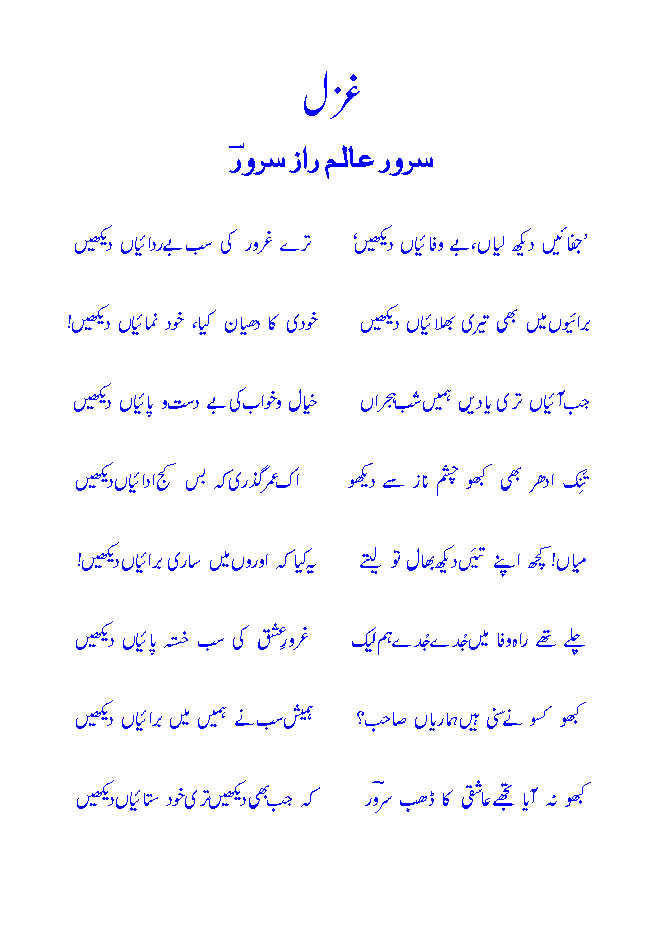 غزل
سرور عالم راز سرورؔ
’جفائیں دیکھ لیاں، بے وفائیاں دیکھیں‘ ترے غرور کی سب بے ردائیاں دیکھیں
برائیوں میں بھی تیری بھلائیاں دیکھیں خودی کا دھیان کیا، خود نمائیاں دیکھیں!
جب آئیاں تری یادیں ہمیں شب ہجراں خیال و خواب کی بے دست و پائیاں دیکھیں
تنِک ادھر بھی کبھو چشم ناز سے دیکھو اک عمر گذری کہ بس کج ادائیاں دیکھیں
میاں! کچھ اپنے تئیں دیکھ بھال تو لیتے یہ کیا کہ اوروں میں ساری برائیاں دیکھیں!
چلے تھے راہ وفا میں جُدے جُدے ہم لیک غرورِ عشق کی سب خستہ پائیاں دیکھیں
کبھو کسو نے سنی ہیں ہماریاں صاحب؟ ہمیش سب نے ہمیں میں برائیاں دیکھیں
کبھو نہ آیا تجھے عاشقی کا ڈھب سرورؔ کہ جب بھی دیکھیں تری خود ستائیاں دیکھیں